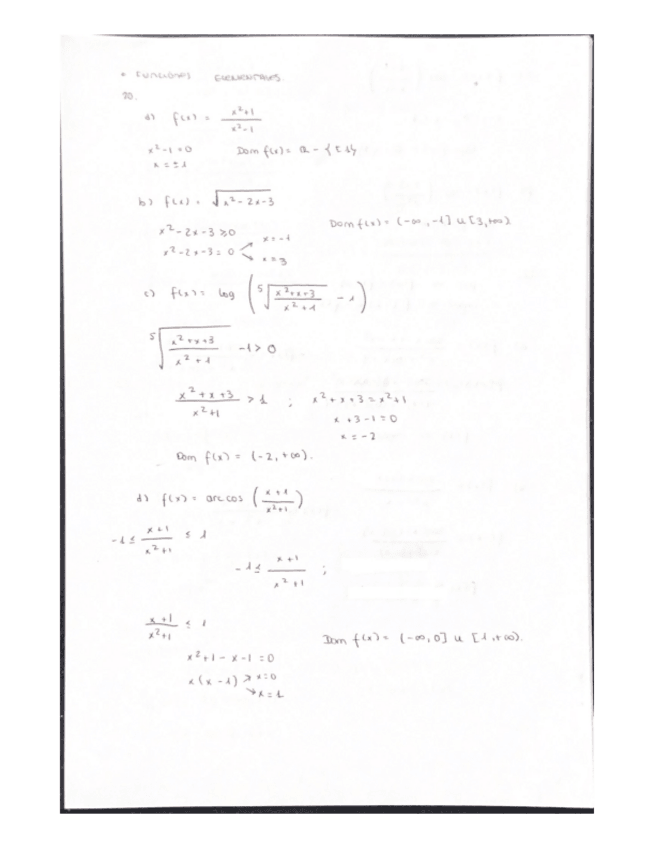 • FUNCIONES ELEMENTALES.
20.
a) f(x) = x²+1 / x²-1
x²-1=0 Dom f(x)= R - {±1}
x=±1
b) f(x) = √x²-2x-3
x²-2x-3 ≥0 Dom f(x)= (-∞,-1] u [3,+∞)
x²-2x-3=0 x=-1
x=3
c) f(x)= log (⁵√x²+x+3 / x²+1 - 1)
⁵√x²+x+3 / x²+1 -1>0
x²+x+3 / x²+1 > 1 ; x²+x+3=x²+1
x+3-1=0
x=-2
Dom f(x) = (-2,+∞).
d) f(x)= arccos (x+1 / x²+1)
-1≤ x+1 / x²+1 ≤ 1
-1≤ x+1 / x²+1 ;
x+1 / x²+1 ≤ 1
Dom f(x)= (-∞,0] u [1,+∞).
x²+1-x-1=0
x(x-1) x=0
x=1